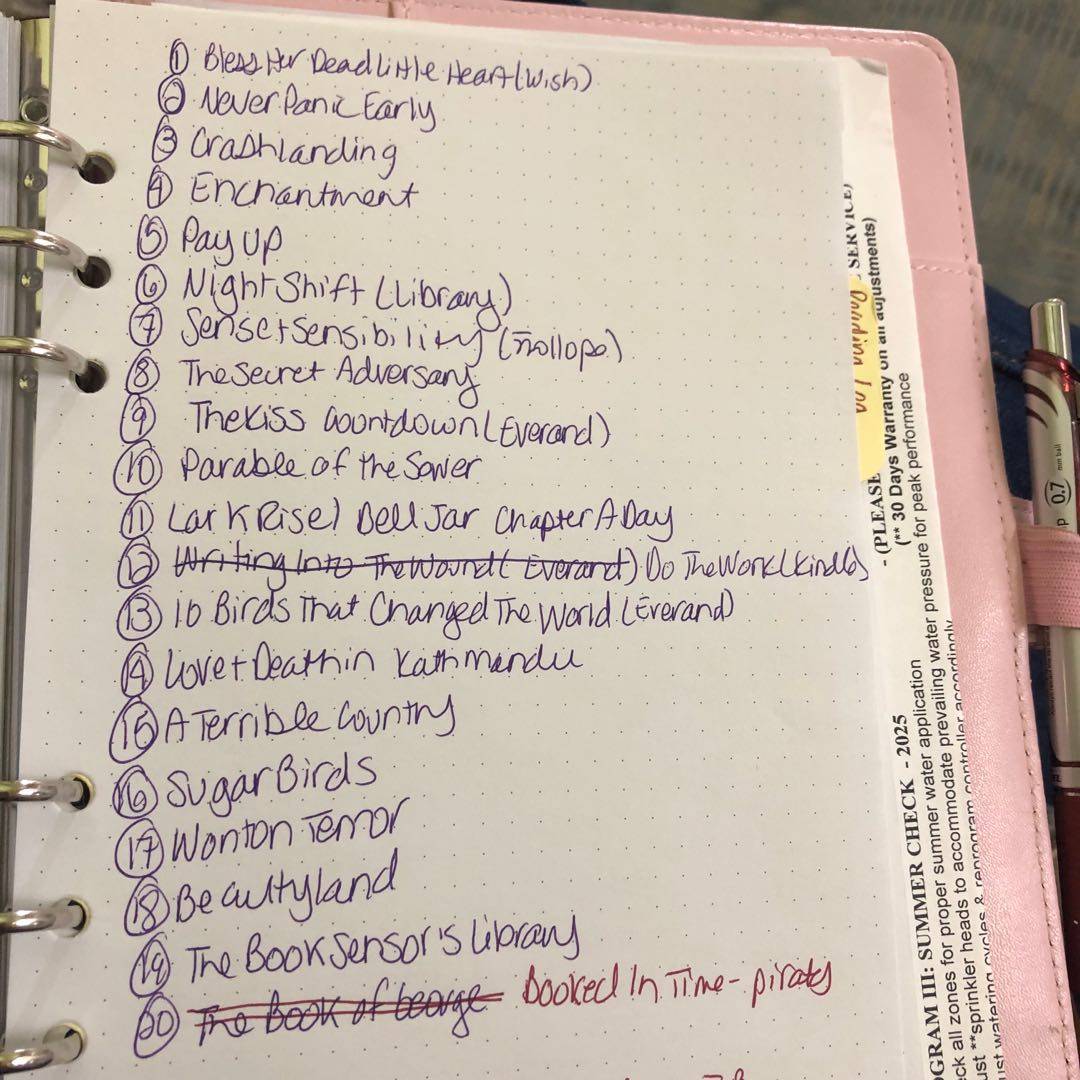 ① Bless Her Dead Little Heart (Wish)
② Never Panic Early
③ Crashlanding
④ Enchantment
⑤ Pay Up
⑥ Night Shift (Library)
⑦ Sense + Sensibility (Trollope)
⑧ The Secret Adversary
⑨ The Kiss Countdown (Everand)
⑩ Parable of the Sower
⑪ Lark Rise) Bell Jar Chapter A Day
⑫ Writing Into The Wound (Everand) Do The Work (Kindle)
⑬ 10 Birds That Changed The World (Everand)
⑭ Love + Death in Kathmandu
⑮ A Terrible Country
⑯ Sugar Birds
⑰ Wonton Terror
⑱ Beautyland
⑲ The Book Sensor's Library
⑳ The Book of George Booked In Time - pirates
SERVICE)
- (PLEASE
(** 30 Days Warranty on all adjustments)
OGRAM III: SUMMER CHECK - 2025
ck all zones for proper summer water application
ust **sprinkler heads to accommodate prevailing water pressure for peak performance
ust watering cycles & reprogram controller accordingly
0.7 mm ball